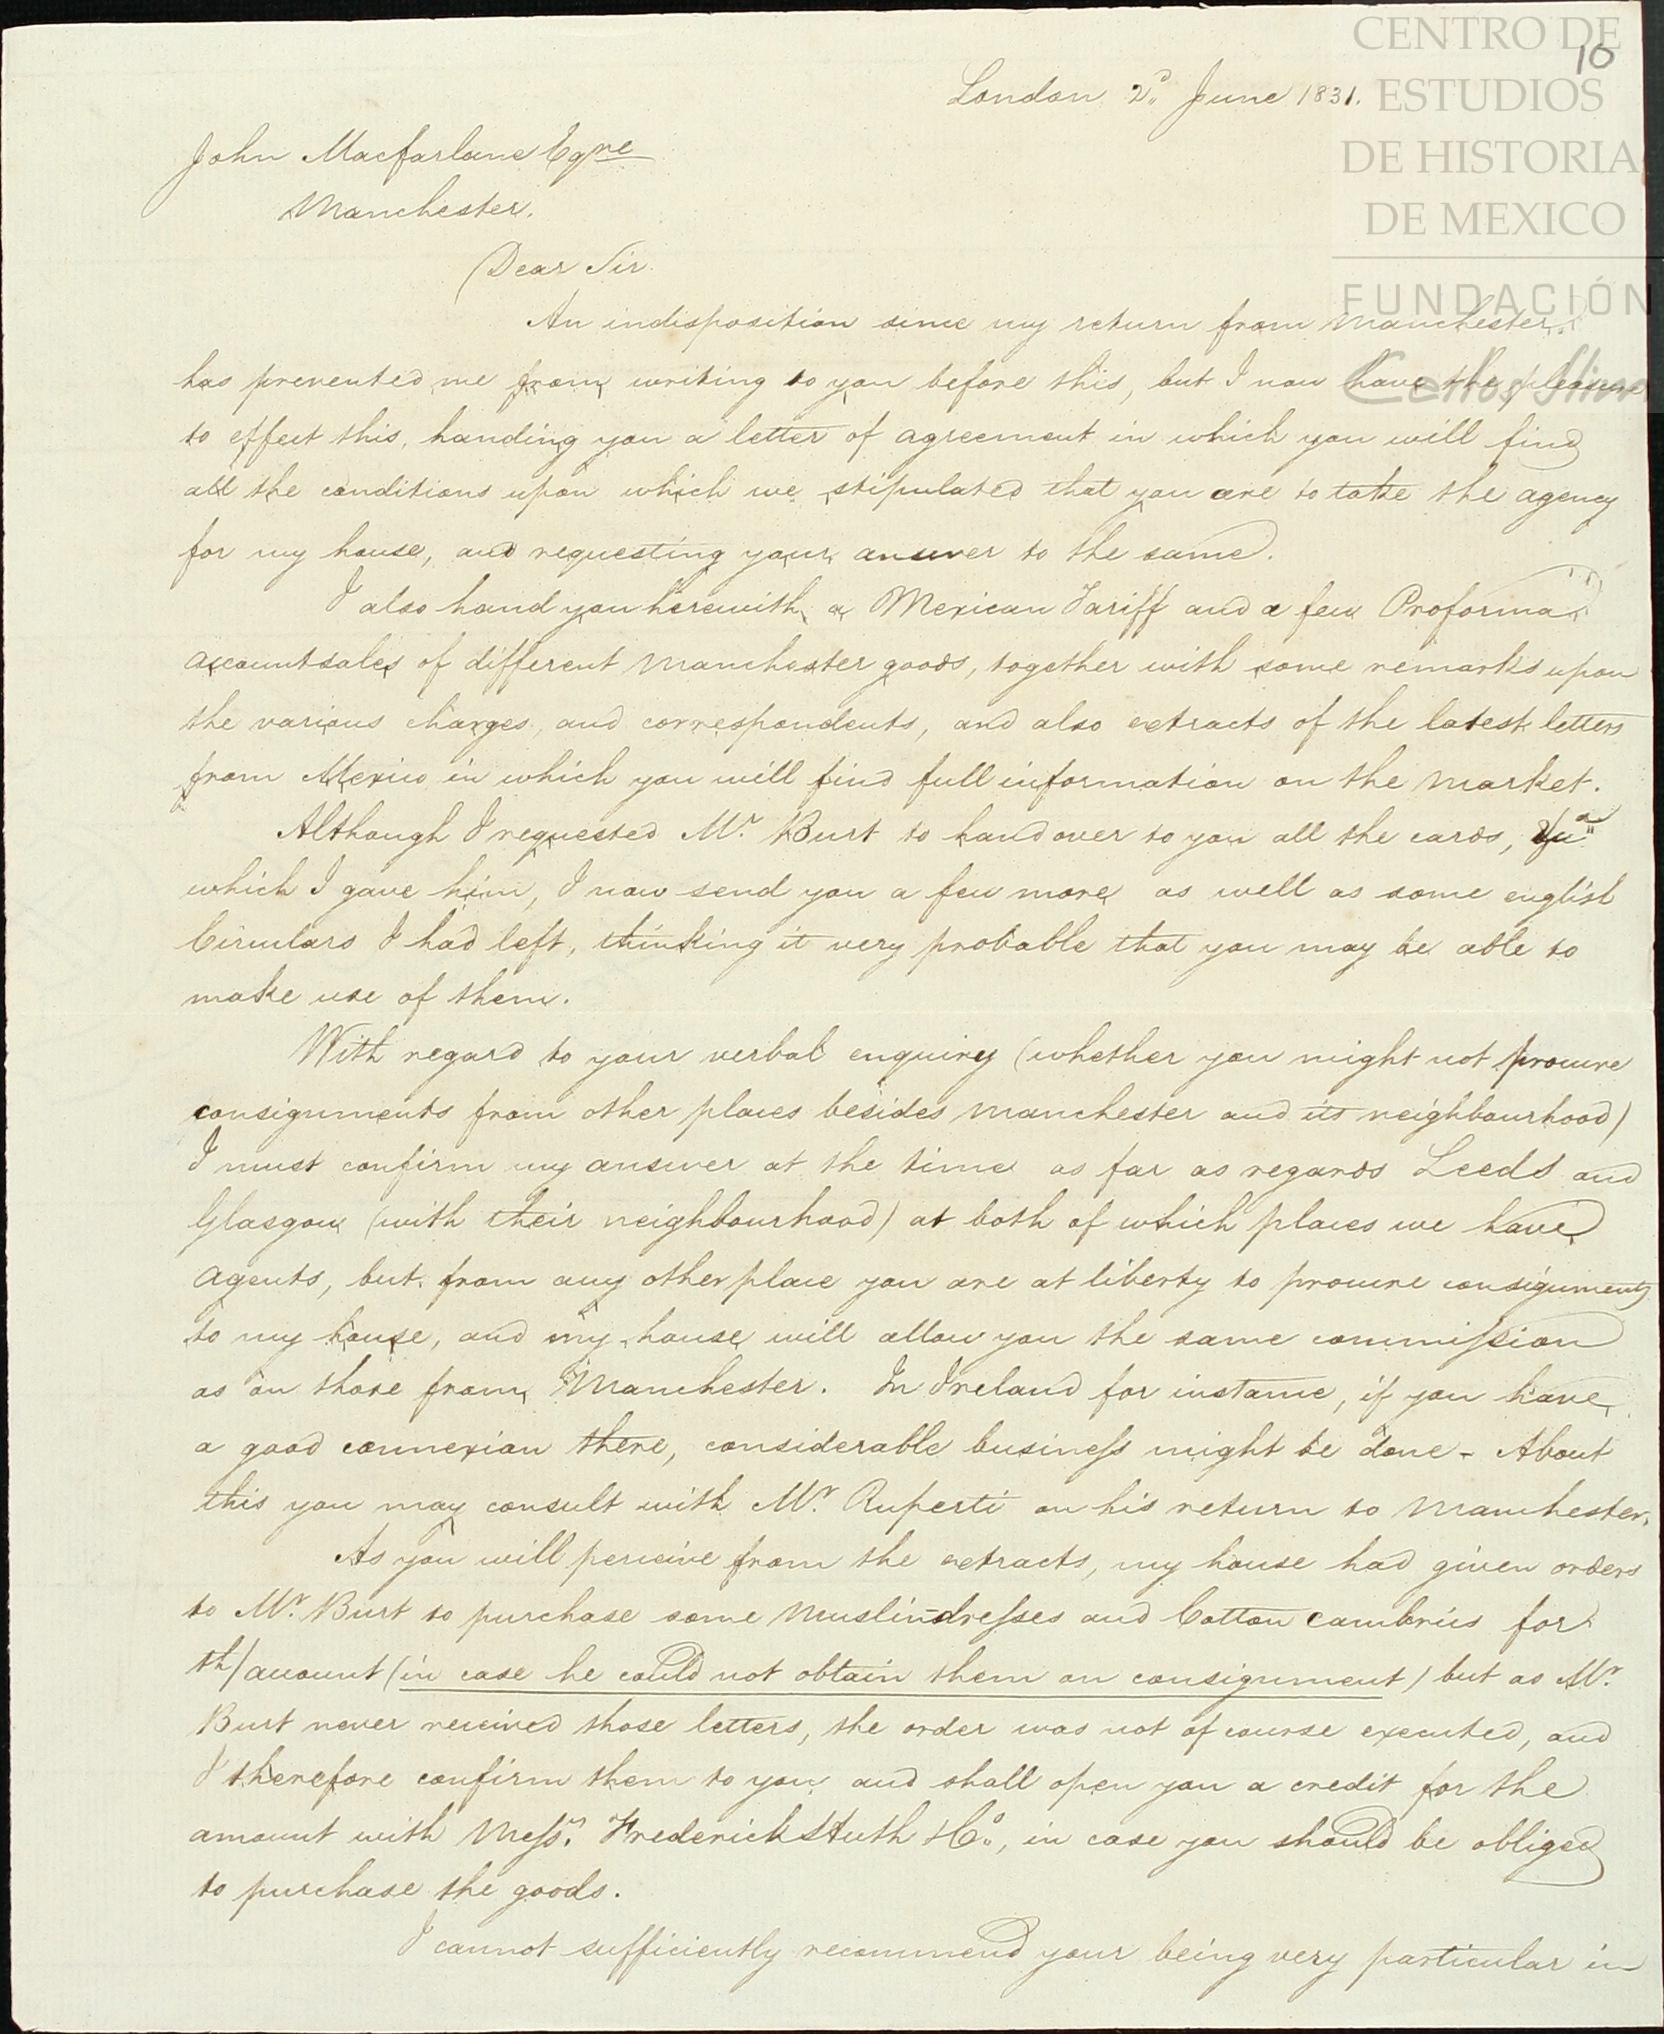 CENTRO DE
ESTUDIOS
DE HISTORIA
DE MEXICO
FUNDACIÓN
Carlos Slim
10
London 2d June 1831.
John Macfarlane Esqre
Manchester.
Dear Sir.
An indisposition since my return from Manchester
has prevented me from writing to you before this, but I now have the pleasure
to effect this, handing you a letter of agreement in which you will find
all the conditions upon which we stipulated that you are to take the agency
for my house, and requesting your answer to the same.
I also hand you herewith a Mexican Tariff and a few Proforma
accountsales of different Manchester goods, together with some remarks upon
the various charges, and correspondents, and also extracts of the latest letters
from Mexico in which you will find full information on the market.
Although I requested Mr. Burt to hand over to you all the cards,
which I gave him, I now send you a few more as well as some english
Circulars I had left, thinking it very probable that you may be able to
make use of them.
With regard to your verbal enquiry (whether you might not procure
consignments from other places besides Manchester and its neighbourhood)
I must confirm my answer at the time as far as regards Leeds and
Glasgow (with their neighbourhood) at both of which places we have
Agents, but from any other place you are at liberty to procure consignments
to my house, and my house will allow you the same commission
as on those from Manchester. In Ireland for instance, if you have
a good connexion there, considerable business might be done - About
this you may consult with Mr. Ruperti on his return to Manchester.
As you will perceive from the extracts, my house had given orders
to Mr. Burt to purchase some Muslin-dresses and Cotton Cambrics for
th/account (in case he could not obtain them on consignment) but as Mr.
Burt never received those letters, the order was not of course executed, and
I therefore confirm them to you and shall open you a credit for the
amount with Messrs. Frederick Huth & Co., in case you should be obliged
to purchase the goods.
I cannot sufficiently recommend your being very particular in